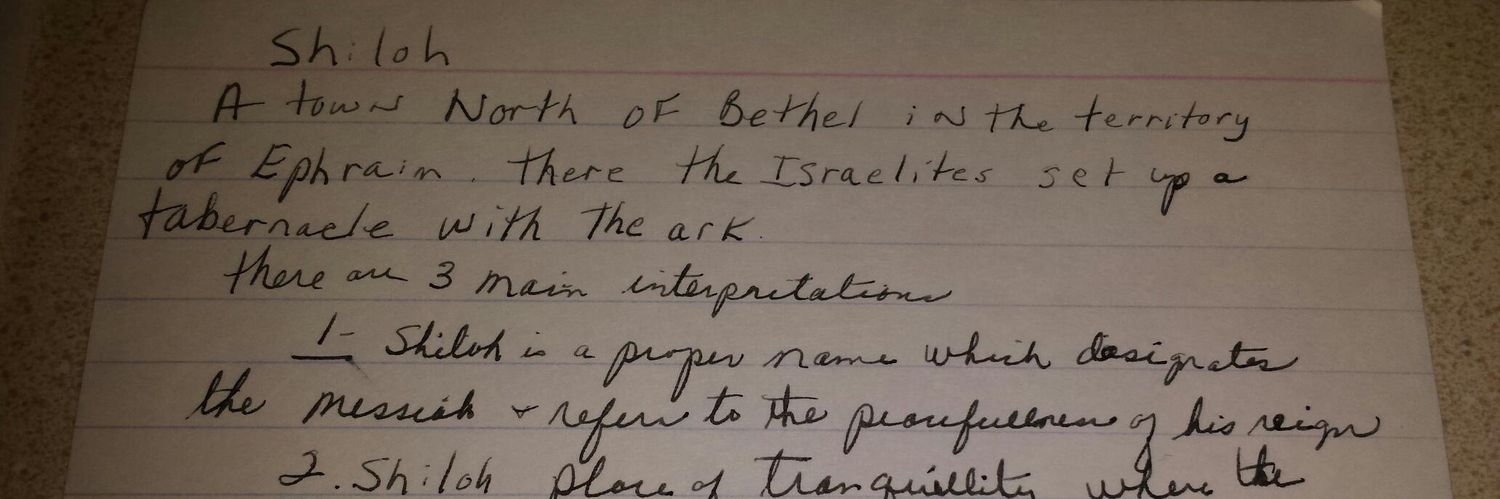 Shiloh
A town North of Bethel in the territory
of Ephrain. there the Israelites set up a
tabernacle with the ark.
there are 3 main interpretations
1- Shiloh is a proper name which designates
the messiah + refers to the peacefullness of his reign
2. Shiloh place of tranquillity where the